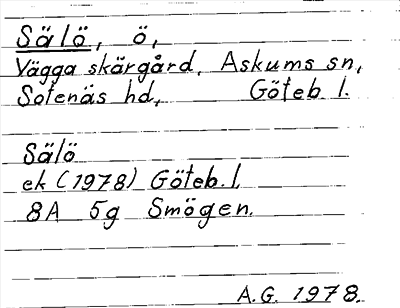 Sälö, ö,
Vägga skärgård, Askums sn,
Sotenäs hd, Göteb l.
Sälö
ek (1978) Göteb. l,
8A 5g Smögen.
A.G. 1978.